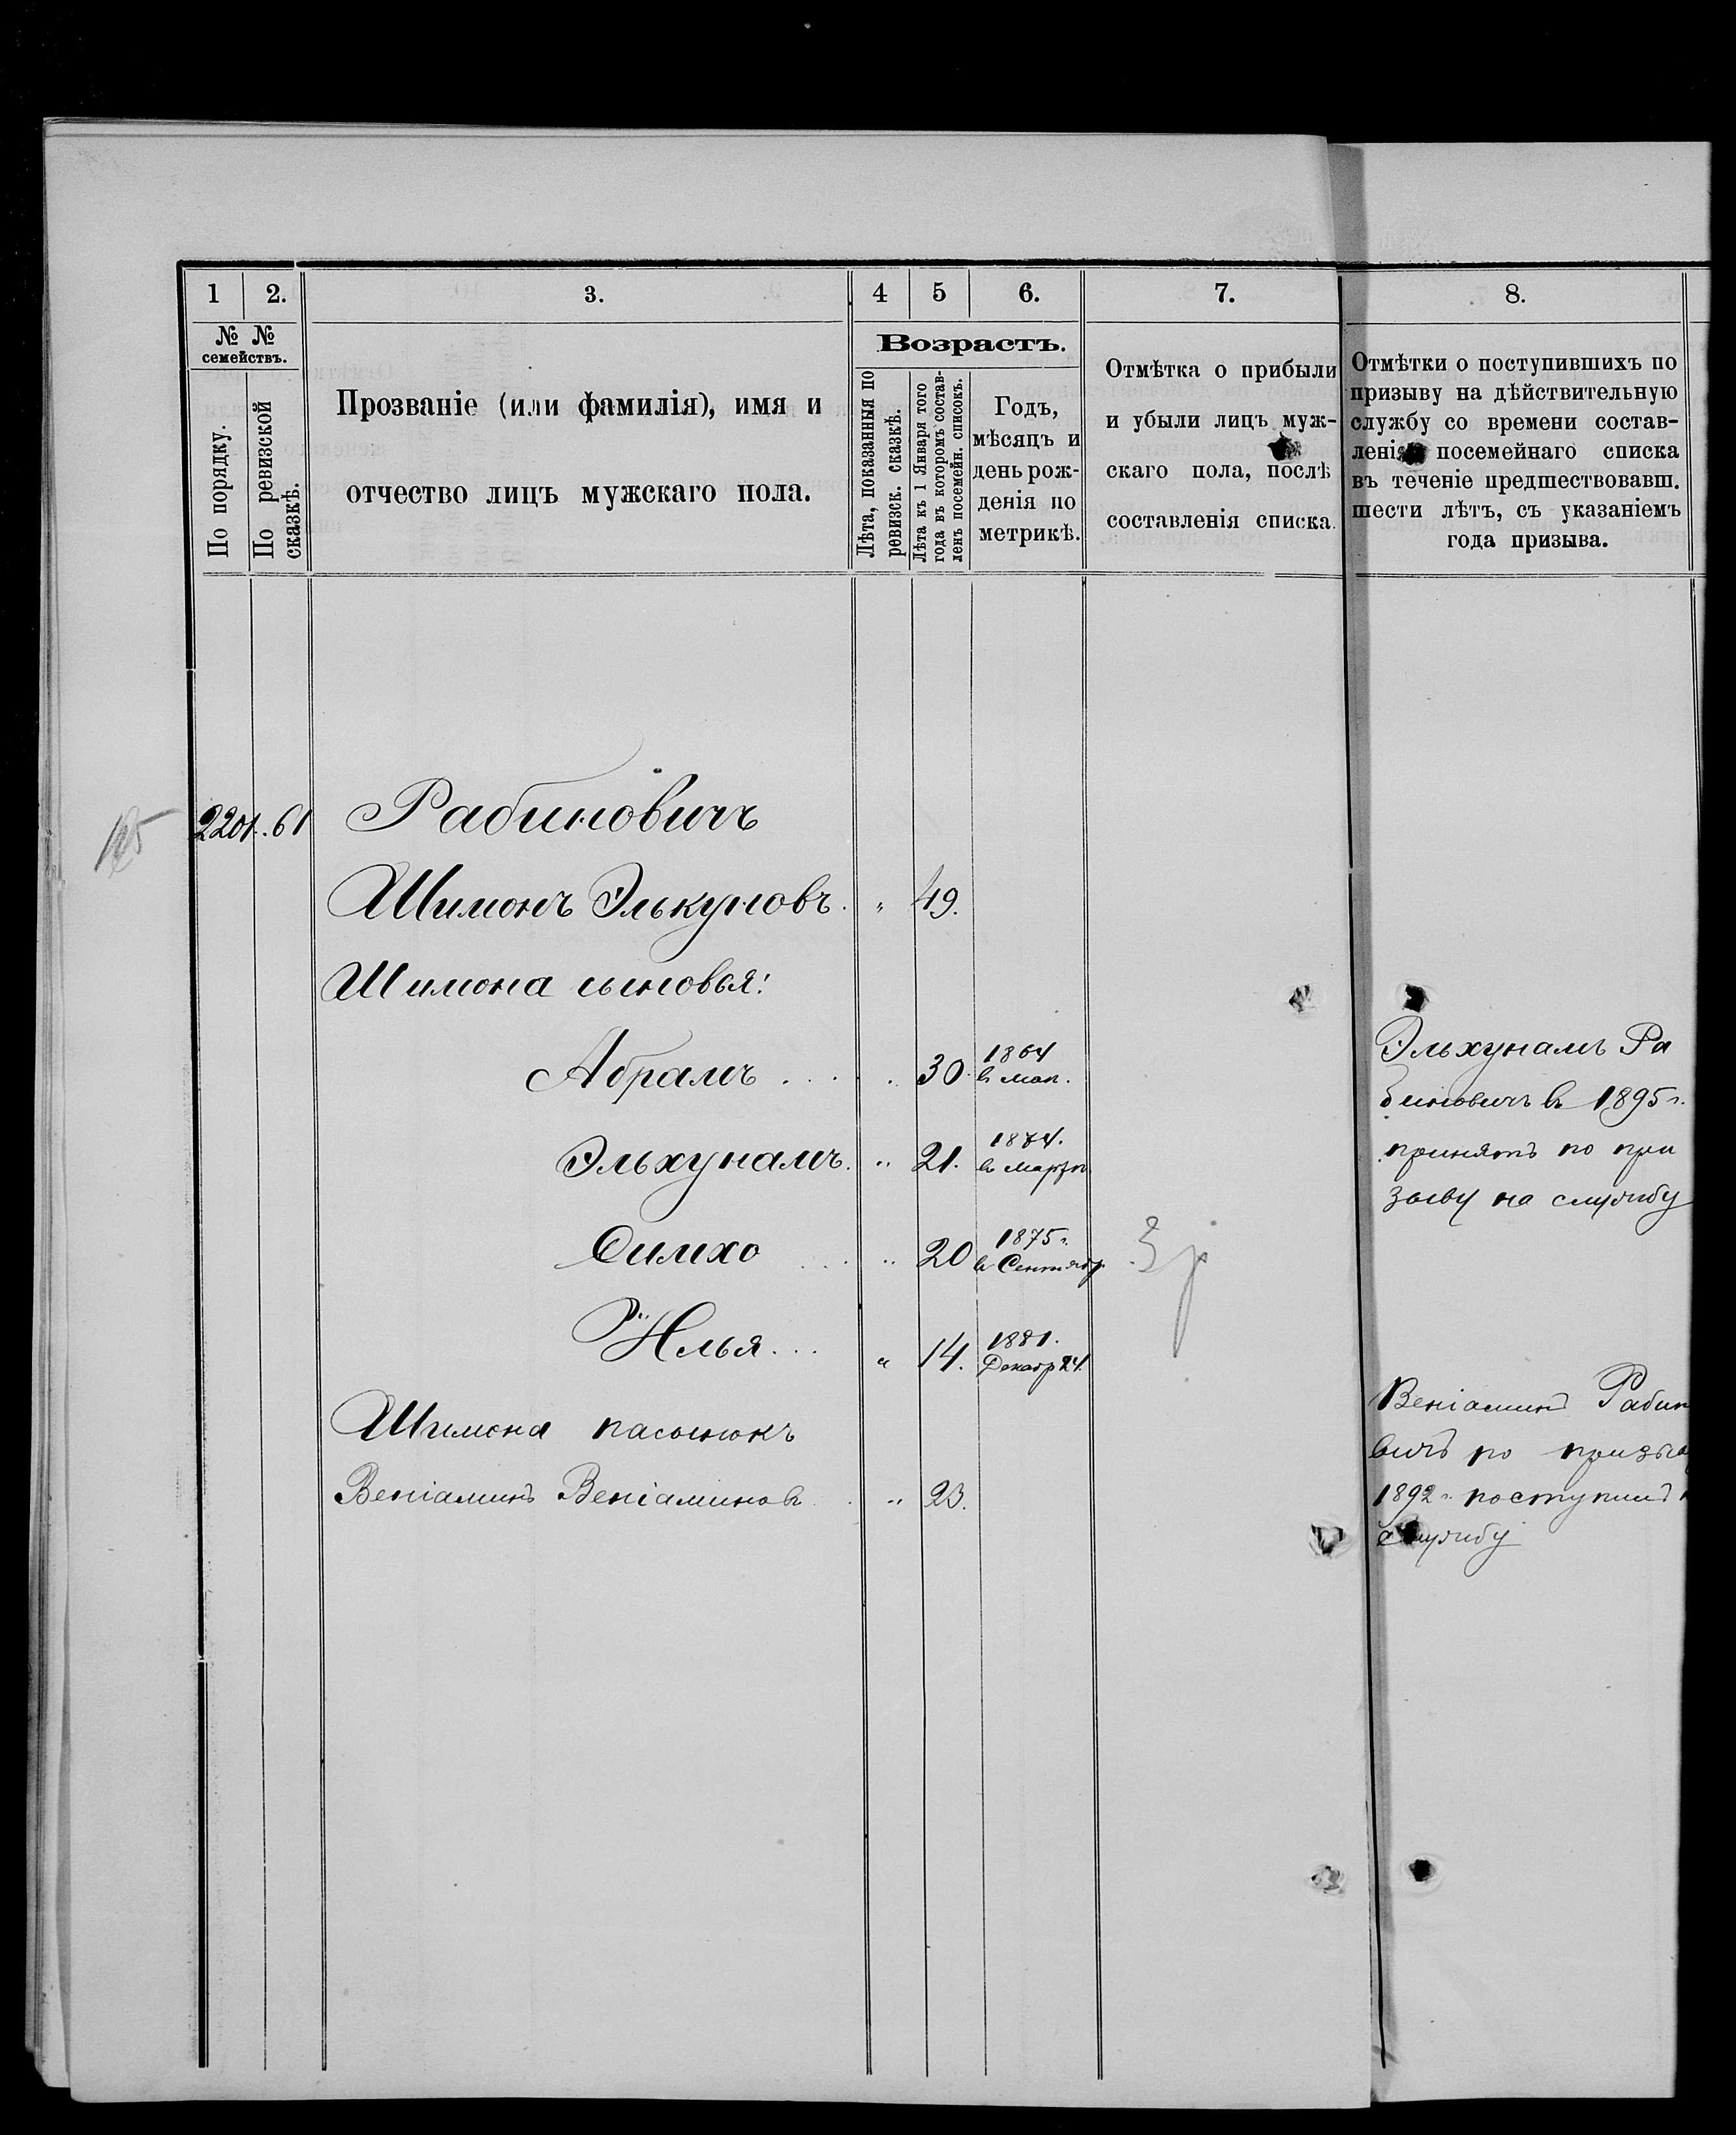 1 2. 3. 4 5 6. 7. 8.
№ №
семействъ.
По порядку.
По ревизской
сказкѣ.
Прозваніе (или фамилія), имя и
отчество лицъ мужскаго пола.
Возрастъ.
Лѣта, показанныя по
ревизск. сказкѣ.
Лѣта къ 1 Января того
года въ которомъ состав-
ленъ посемейн. списокъ.
Годъ,
мѣсяцъ и
день рож-
денія по
метрикѣ.
Отмѣтка о прибыли
и убыли лицъ муж-
скаго пола, послѣ
составленія списка.
Отмѣтки о поступившихъ по
призыву на дѣйствительную
службу со времени состав-
ленія посемейнаго списка
въ теченіе предшествовавш.
шести лѣтъ, съ указаніемъ
года призыва.
2201. 61 Рабиновичъ
Шимонъ Элькуновъ. " 49.
Шимона сыновья:
Абрамъ . . . . " 30. 1864
в мап.
Эльхунамъ. " 21. 1874.
в Марта
Симхо . . . " 20 1875 г.
в Сентябр
Илья . . . " 14. 1881.
Декабр 24.
Шимона пасынокъ
Веніаминъ Веніаминовъ . " 23.
Эльхунамъ Ра
биновичъ въ 1895 г.
принятъ по при
зыву на службу
Веніаминъ Рабин
вичъ по призыв
1892 г. поступилъ н
службу